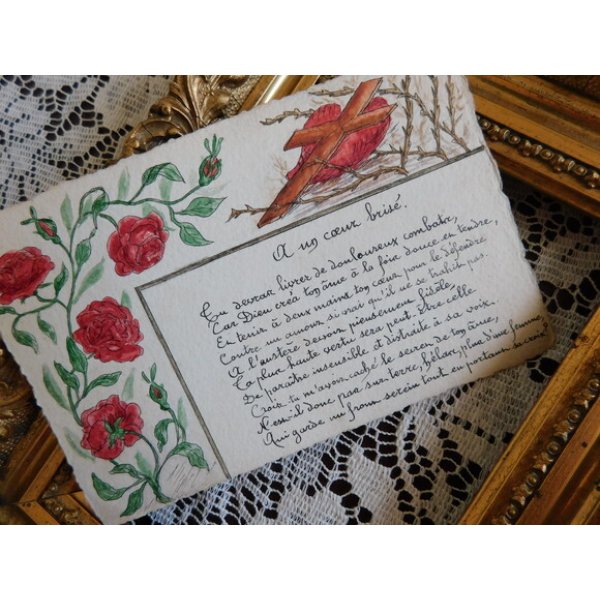 A un cœur brisé.
Tu devras livrer de douloureux combats,
Car Dieu créa ton âme à la fois douce et tendre,
Et tenir à deux mains ton cœur pour le défendre
Contre un amour si vrai qu'il ne se trahit pas.
A l'austère devoir pieusement fidèle,
Ta plus haute vertu sera peut-être celle
De paraître insensible et distraite à sa voix.
Crois-tu m'avoir caché le secret de ton âme,
N'est-il donc pas sur terre, hélas, plus d'une femme,
Qui garde un front serein tout en portant sa croix!